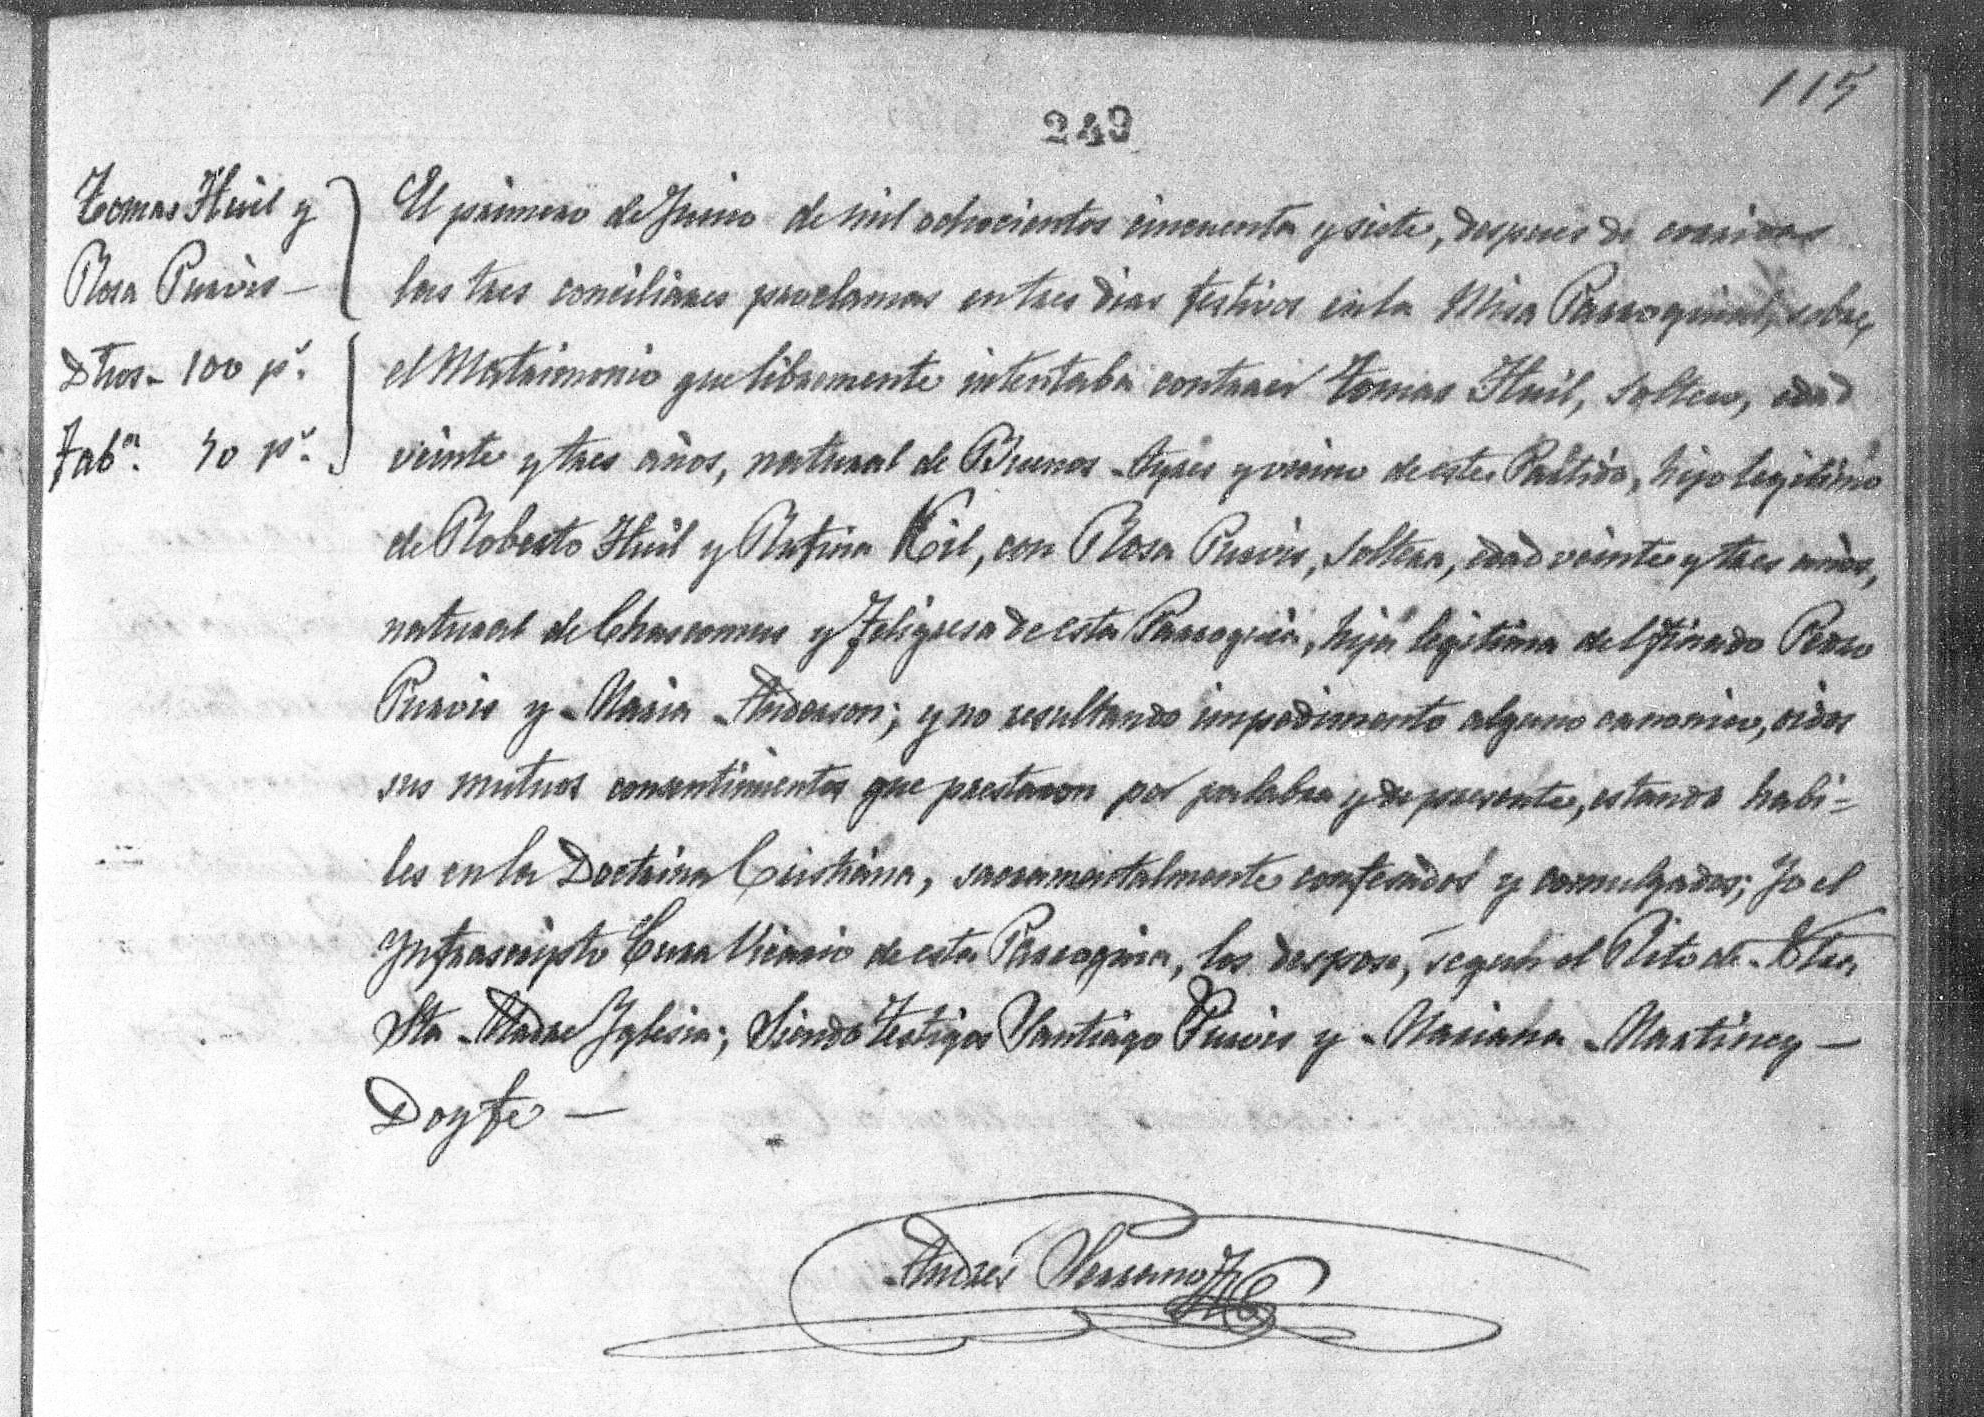 115
249
Tomas Huil y
Rosa Purvis —
Dhos - 100 p.s
Fab.a 50 p.s
El primero de Junio de mil ochocientos cincuenta y siete, despues de corridas
las tres conciliares proclamas en tres dias festivos en la Misa Parroquial, sobre
el Matrimonio que libremente intentaba contraer Tomas Huil, soltero, edad
veinte y tres años, natural de Buenos Ayres y vecino de este Partido, hijo legitimo
de Roberto Huil y Rufina Kil, con Rosa Purvis, soltera, edad veinte y tres años,
natural de Chascomus y Feligresa de esta Parroquia, hija legitima del finado Pedro
Purvis y Maria Anderson; y no resultando impedimento alguno canonico, oidos
sus mutuos consentimientos que prestaron por palabra y de presente, estando habi=
les en la Doctrina Cristiana, sacramentalmente confesados y comulgados; Yo el
Infrascripto Cura Vicario de esta Parroquia, los desposé, según el Rito de Ntra
Sta Madre Iglesia; siendo testigos Santiago Purvis y Mariana Martinez —
Doy fe —
Andres Serrano